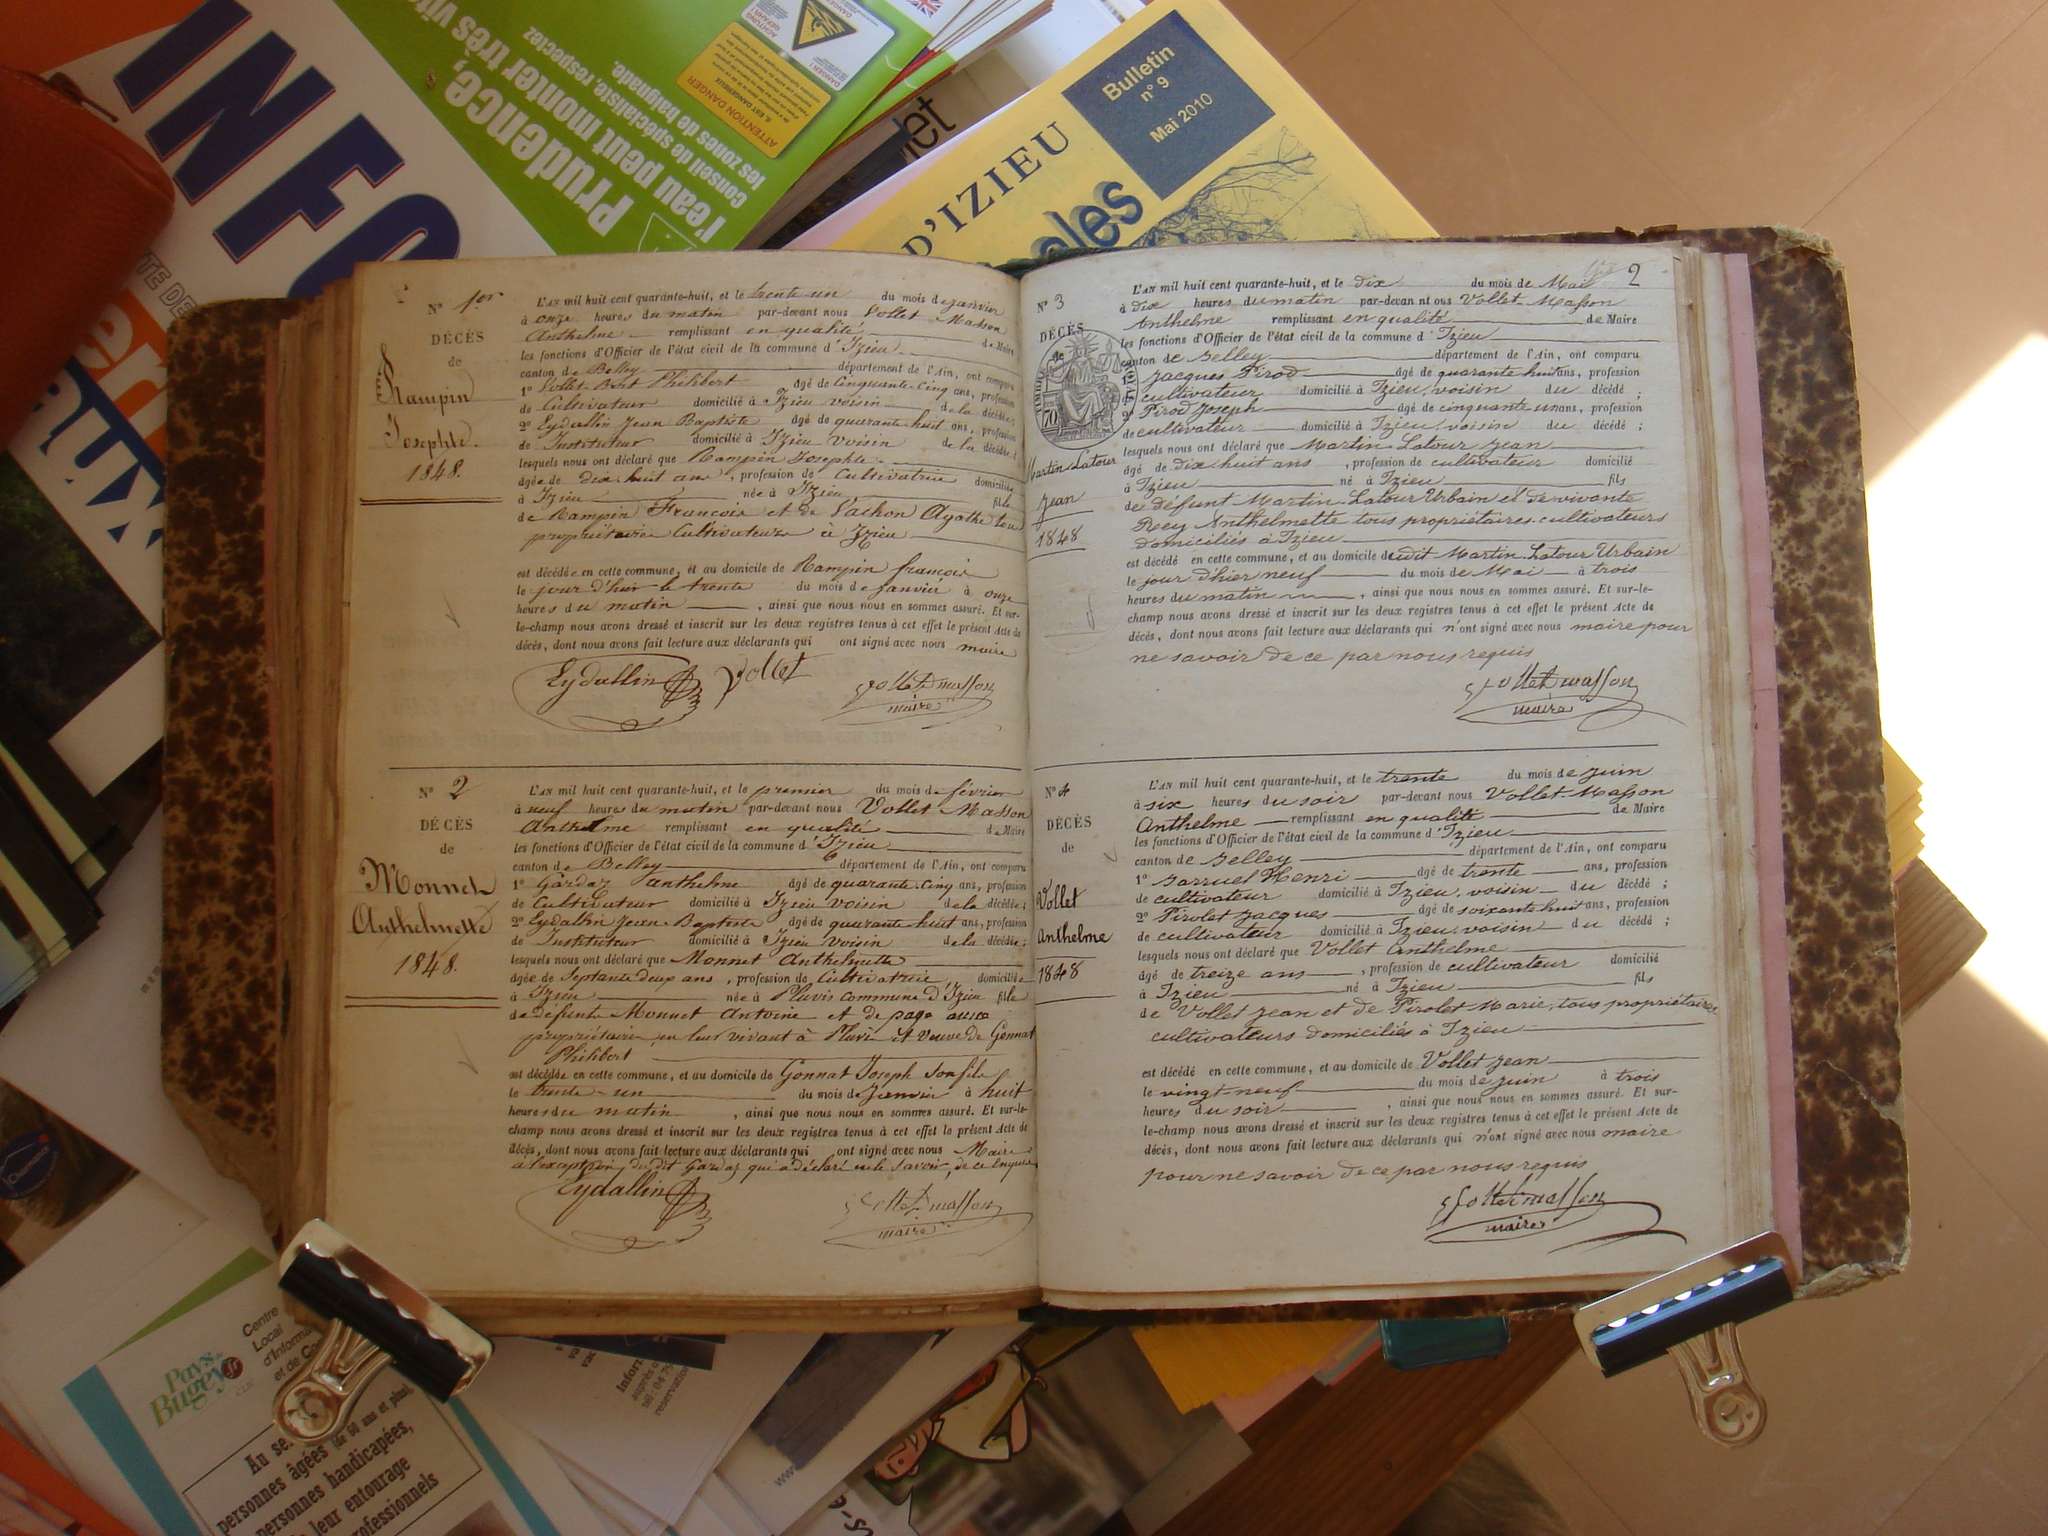 INFO
Prudence,
l'eau peut monter très vite
conseil de spécialiste, respectez
les zones de baignade.
ATTENTION DANGER
Bulletin
n° 9
Mai 2010
D'IZIEU
N° 1er
DÉCÈS
de
Rampin
Josephte.
1848.
L'AN mil huit cent quarante-huit, et le trente un du mois de janvier
à onze heures du matin par-devant nous Vollet Masson
Anthelme remplissant en qualité de Maire
les fonctions d'Officier de l'état civil de la commune d'Izieu
canton de Belley département de l'Ain, ont comparu
1° Vollet Philibert âgé de Cinquante-Cinq ans, profession
de Cultivateur domicilié à Izieu voisin de la décédée;
2° Eydallin Jean Baptiste âgé de quarante huit ans, profession
de Instituteur domicilié à Izieu voisin de la décédée;
lesquels nous ont déclaré que Rampin Josephte
âgée de dix huit ans, profession de Cultivatrice domiciliée
à Izieu née à Izieu fille
de Rampin François et de Vachon Agathe tous
propriétaires Cultivateurs à Izieu
est décédée en cette commune, et au domicile de Rampin françois
le jour d'hier le trente du mois de janvier à onze
heures du matin, ainsi que nous nous en sommes assuré. Et sur-
le-champ nous avons dressé et inscrit sur les deux registres tenus à cet effet le présent Acte de
décès, dont nous avons fait lecture aux déclarants qui ont signé avec nous maire
Eydallin Vollet Vollet-masson
maire
N° 2
DÉCÈS
de
Monnet
Anthelmette
1848.
L'AN mil huit cent quarante-huit, et le premier du mois de février
à neuf heures du matin par-devant nous Vollet Masson
Anthelme remplissant en qualité de Maire
les fonctions d'Officier de l'état civil de la commune d'Izieu
canton de Belley département de l'Ain, ont comparu
1° Gardaz anthelme âgé de quarante-Cinq ans, profession
de Cultivateur domicilié à Izieu voisin de la décédée;
2° Eydallin Jean-Baptiste âgé de quarante huit ans, profession
de Instituteur domicilié à Izieu voisin de la décédée;
lesquels nous ont déclaré que Monnet Anthelmette
âgée de Septante deux ans, profession de Cultivatrice domiciliée
à Izieu née à Pluvis commune d'Izieu fille
de défunts Monnet Antoine et de page
propriétaires en leur vivant à Pluvis et veuve de Gonnat
Philibert
est décédée en cette commune, et au domicile de Gonnat Joseph Son fils
le trente-un du mois de Janvier à huit
heures du matin, ainsi que nous nous en sommes assuré. Et sur-le-
champ nous avons dressé et inscrit sur les deux registres tenus à cet effet le présent Acte de
décès, dont nous avons fait lecture aux déclarants qui ont signé avec nous Maire
a l'exception du dit Gardaz qui a déclaré ne le Savoir, de ce Enquis
Eydallin Vollet-masson
maire
2
N° 3
DÉCÈS
de
Martin-Latour
Jean
1848
L'AN mil huit cent quarante-huit, et le dix du mois de Mai
à dix heures du matin par-devant nous Vollet-Masson
Anthelme remplissant en qualité de Maire
les fonctions d'Officier de l'état civil de la commune d'Izieu
canton de Belley département de l'Ain, ont comparu
Jacques Pirod âgé de quarante huit ans, profession
cultivateur domicilié à Izieu, voisin du décédé;
2° Pirod Joseph âgé de cinquante un ans, profession
de cultivateur domicilié à Izieu, voisin du décédé;
lesquels nous ont déclaré que Martin-Latour Jean
âgé de dix huit ans, profession de cultivateur domicilié
à Izieu né à Izieu fils
de défunt Martin-Latour Urbain et de vivante
Rey Anthelmette tous propriétaires cultivateurs
domiciliés à Izieu
est décédé en cette commune, et au domicile dudit Martin-Latour Urbain
le jour d'hier neuf du mois de Mai à trois
heures du matin, ainsi que nous nous en sommes assuré. Et sur-le-
champ nous avons dressé et inscrit sur les deux registres tenus à cet effet le présent Acte de
décès, dont nous avons fait lecture aux déclarants qui n'ont signé avec nous maire pour
ne savoir de ce par nous requis
Vollet-masson
maire
N° 4
DÉCÈS
de
Vollet
Anthelme
1848
L'AN mil huit cent quarante-huit, et le trente du mois de Juin
à six heures du soir par-devant nous Vollet-Masson
Anthelme remplissant en qualité de Maire
les fonctions d'Officier de l'état civil de la commune d'Izieu
canton de Belley département de l'Ain, ont comparu
1° Barruel Henri âgé de trente ans, profession
de cultivateur domicilié à Izieu, voisin du décédé;
2° Pirolet Jacques âgé de soixante huit ans, profession
de cultivateur domicilié à Izieu, voisin du décédé;
lesquels nous ont déclaré que Vollet Anthelme
âgé de treize ans, profession de cultivateur domicilié
à Izieu né à Izieu fils
de Vollet Jean et de Pirolet Marie, tous propriétaires
cultivateurs domiciliés à Izieu
est décédé en cette commune, et au domicile de Vollet Jean
le vingt-neuf du mois de Juin à trois
heures du soir, ainsi que nous nous en sommes assuré. Et sur-
le-champ nous avons dressé et inscrit sur les deux registres tenus à cet effet le présent Acte de
décès, dont nous avons fait lecture aux déclarants qui n'ont signé avec nous maire
pour ne savoir de ce par nous requis
Vollet-masson
maire
Pays
Bugey
Centre
Local
d'Informa
et de Co
Au se
personnes âgées (de 60 ans et plus)
personnes handicapées,
leur entourage
rofessionnels